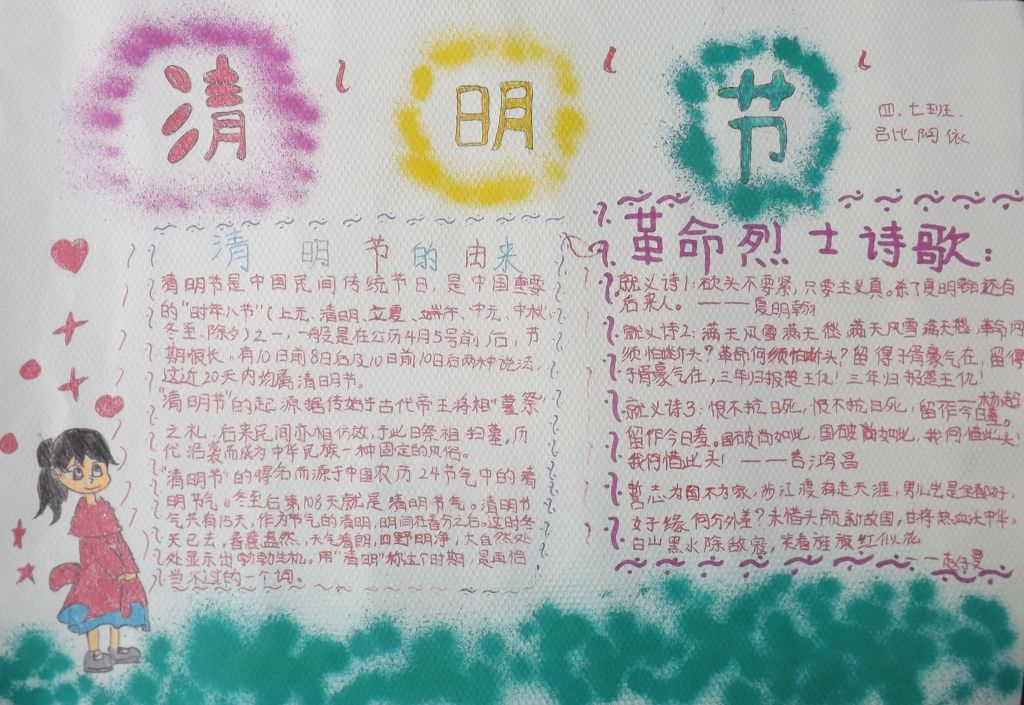 清明节
四、七班
吕比阿依
清明节的由来
清明节是中国民间传统节日，是中国重要
的"时年八节"（上元、清明、立夏、端午、中元、中秋、
冬至、除夕）之一，一般是在公历4月5号前后，节
期很长，有10日前8日后及10日前10日后两种说法，
这近20天内均属清明节。
"清明节"的起源据传始于古代帝王将相"墓祭"
之礼，后来民间亦相仿效，于此日祭祖扫墓。历
代沿袭而成为中华民族一种固定的风俗。
"清明节"的得名而源于中国农历24节气中的清
明节气。冬至后第108天就是清明节气。清明节
气共有15天，作为节气的清明，时间在春分之后。这时冬
天已去，春意盎然，天气清朗，四野明净，大自然处
处显示出勃勃生机。用"清明"称这个时期，是再恰
当不过的一个词。
革命烈士诗歌：
就义诗1：砍头不要紧，只要主义真。杀了夏明翰还有
后来人。———夏明翰
就义诗2：满天风雪满天愁，满天风雪满天愁，革命何
须怕断头？革命何须怕断头？留得子胥豪气在，留得
子胥豪气在，三年归报楚王仇！三年归报楚王仇！
——杨超
就义诗3：恨不抗日死，恨不抗日死，留作今日羞。
留作今日羞。国破尚如此，国破尚如此，我何惜此头！
我何惜此头！——吉鸿昌
誓志为国不为家，涉江渡海走天涯，男儿岂是全都好，
女子缘何分外差？未惜头颅新故国，甘将热血沃中华。
白山黑水除敌寇，笑看旌旗红似花
——赵一曼